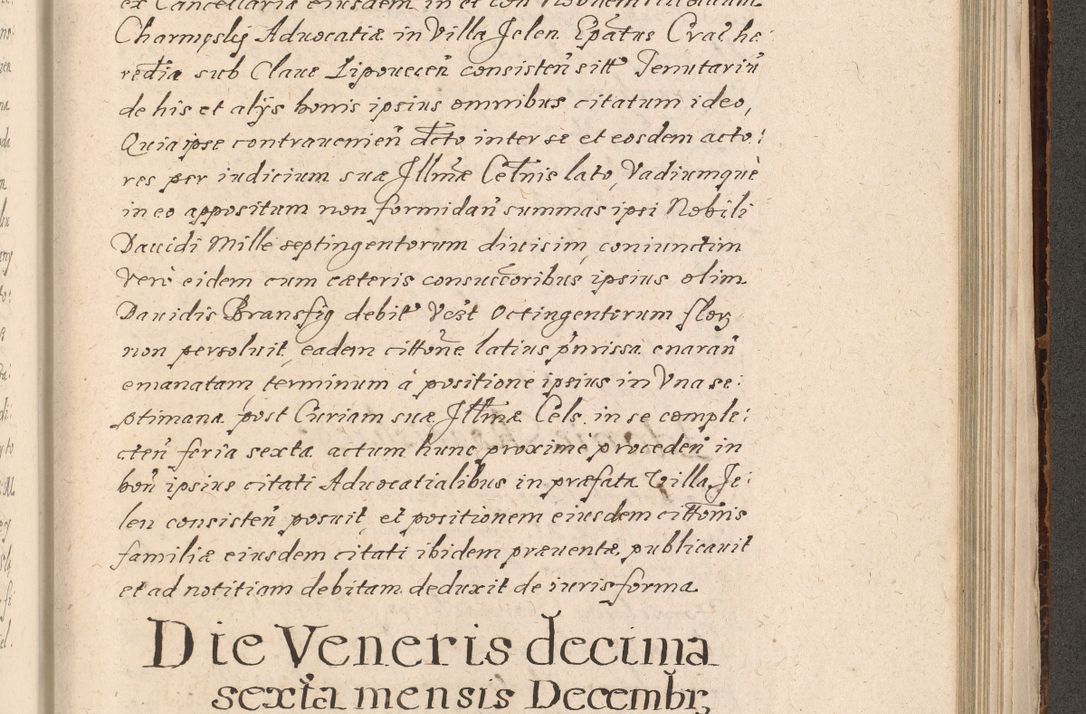 ex Cancellaria eiusdem in et con
Charmęskj Aduocatiæ in Villa Jelen Ep̃atus Crac hæ:
redia sub Claue Lipouecen̄ consisten̄ sitt Tenutariū
de his et alÿs bonis ipsius omnibus citatum ideo,
Quia ipse contrauenien̄ dcto inter se et eosdem acto:
res per iudicium suæ Jllmæ Celnis lato, Vadiumquè
in eo appositum non formidan̄ summas ipsi Nobili
Dauidi Mille septingentorum diuisim, coniunctim
verò eidem cum cæteris consuccoribus ipsius olim
Dauidis Bransfig debit Vest Octingentorum flor,
non persoluit, eadem cittōne latius p̄nrissa enaran̄
emanatam terminum à positione ipsius in Vna se:
ptimana post Curiam suæ Jllmæ Cels. in se comple:
cten̄ feria sexta actum hunc proxime proceden̄ in
bon̄ ipsius citati Aduocatialibus in præfata Villa Je:
len consisten̄ posuit, et positionem eiusdem cittonis
familiæ eiusdem citati ibidem præuentæ publicauit
et ad notitiam debitam deduxit de iuris forma.
Die Veneris decima
sexta mensis Decembr,